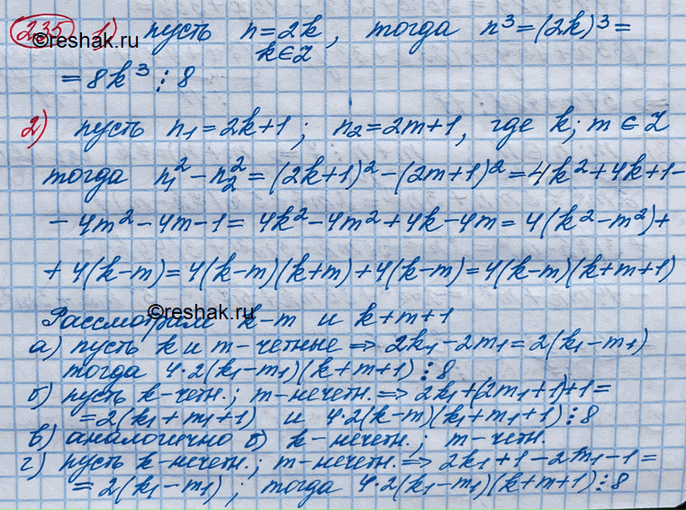 235 1) пусть n=2k, k∈Z, тогда n³=(2k)³=
=8k³⋮8
2) пусть n₁=2k+1; n₂=2m+1, где k; m∈Z
тогда n₁²-n₂²=(2k+1)²-(2m+1)²=4k²+4k+1-
-4m²-4m-1=4k²-4m²+4k-4m=4(k²-m²)+
+4(k-m)=4(k-m)(k+m)+4(k-m)=4(k-m)(k+m+1)
Рассмотрим k-m и k+m+1
а) пусть k и m-четные ⇒ 2k₁-2m₁=2(k₁-m₁)
тогда 4·2(k₁-m₁)(k+m+1)⋮8
б) пусть k-четн.; m-нечетн.⇒2k₁+(2m₁+1)+1=
=2(k₁+m₁+1) и 4·2(k-m)(k₁+m₁+1)⋮8
в) аналогично б) k-нечетн.; m-четн.
г) пусть k-нечетн.; m-нечетн.⇒2k₁+1-2m₁-1=
=2(k₁-m₁); тогда 4·2(k₁-m₁)(k+m+1)⋮8
©reshak.ru
©reshak.ru